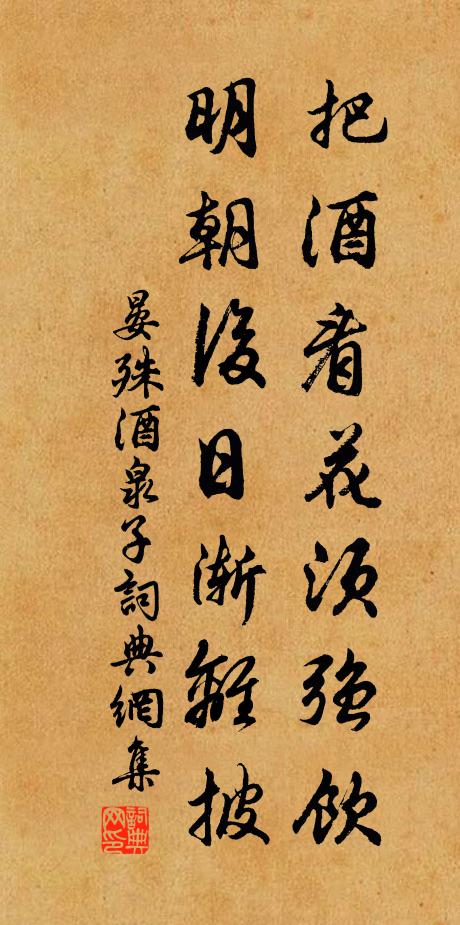 把酒看花須強飲
明朝後日漸離披
晏殊酒泉子詞典網集
詞典网印